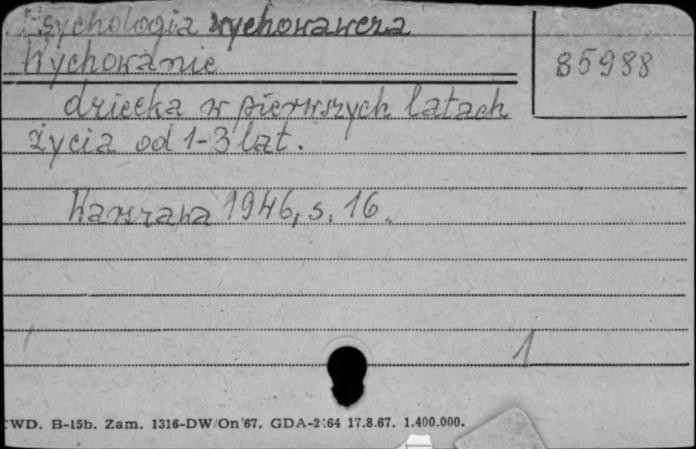 Psychologia wychowawcza
Wychowanie
85988
dziecka w pierwszych latach
życia od 1-3 lat.
Warszawa 1946, s. 16.
1
CWD. B-15b. Zam. 1316-DW/On'67. GDA-2/64 17.8.67. 1.400.000.